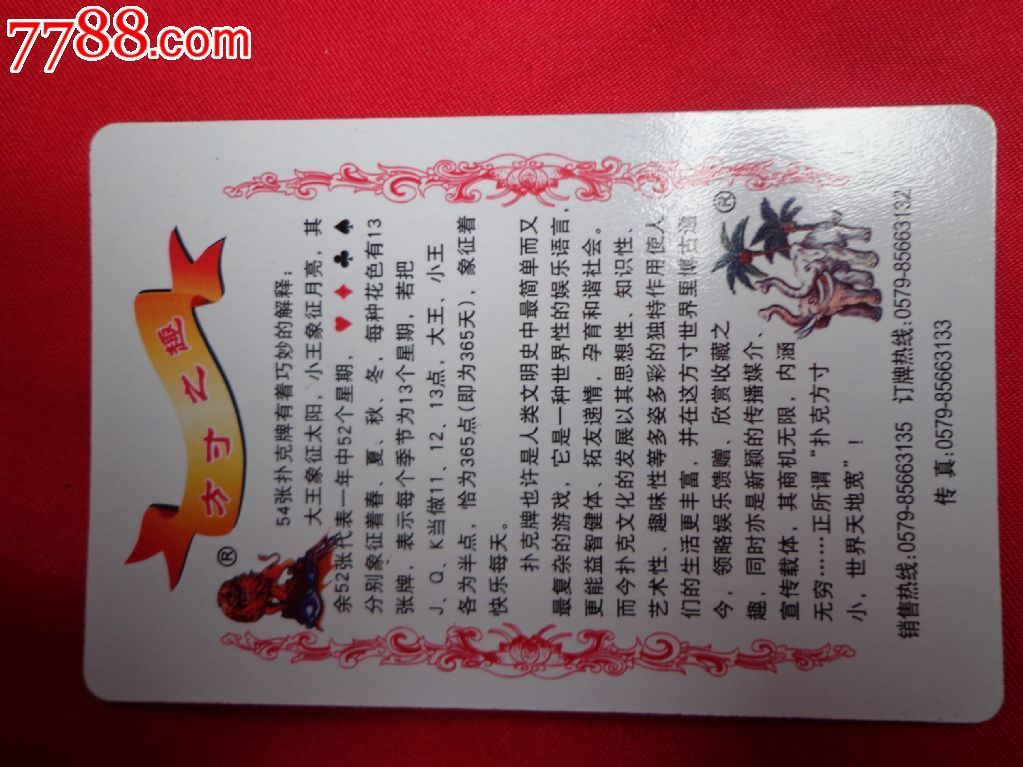 7788.com
方寸之趣
®
54张扑克牌有着巧妙的解释：
大王象征太阳，小王象征月亮，其
余52张代表一年中52个星期，♥ ♦ ♣ ♠
分别象征着春、夏、秋、冬，每种花色有13
张牌，表示每个季节为13个星期，若把
J、Q、K当做11、12、13点，大王、小王
各为半点，恰为365点(即为365天)，象征着
快乐每天。
扑克牌也许是人类文明史中最简单而又
最复杂的游戏，它是一种世界性的娱乐语言，
更能益智健体、拓友递情，孕育和谐社会。
而今扑克文化的发展以其思想性、知识性、
艺术性、趣味性等多姿多彩的独特作用使人
们的生活更丰富，并在这方寸世界里博古通
今，领略娱乐馈赠、欣赏收藏之
趣，同时亦是新颖的传播媒介、
宣传载体，其商机无限，内涵
无穷……正所谓“扑克方寸
小，世界天地宽”！
®
销售热线:0579-85663135 订牌热线:0579-85663132
传真:0579-85663133